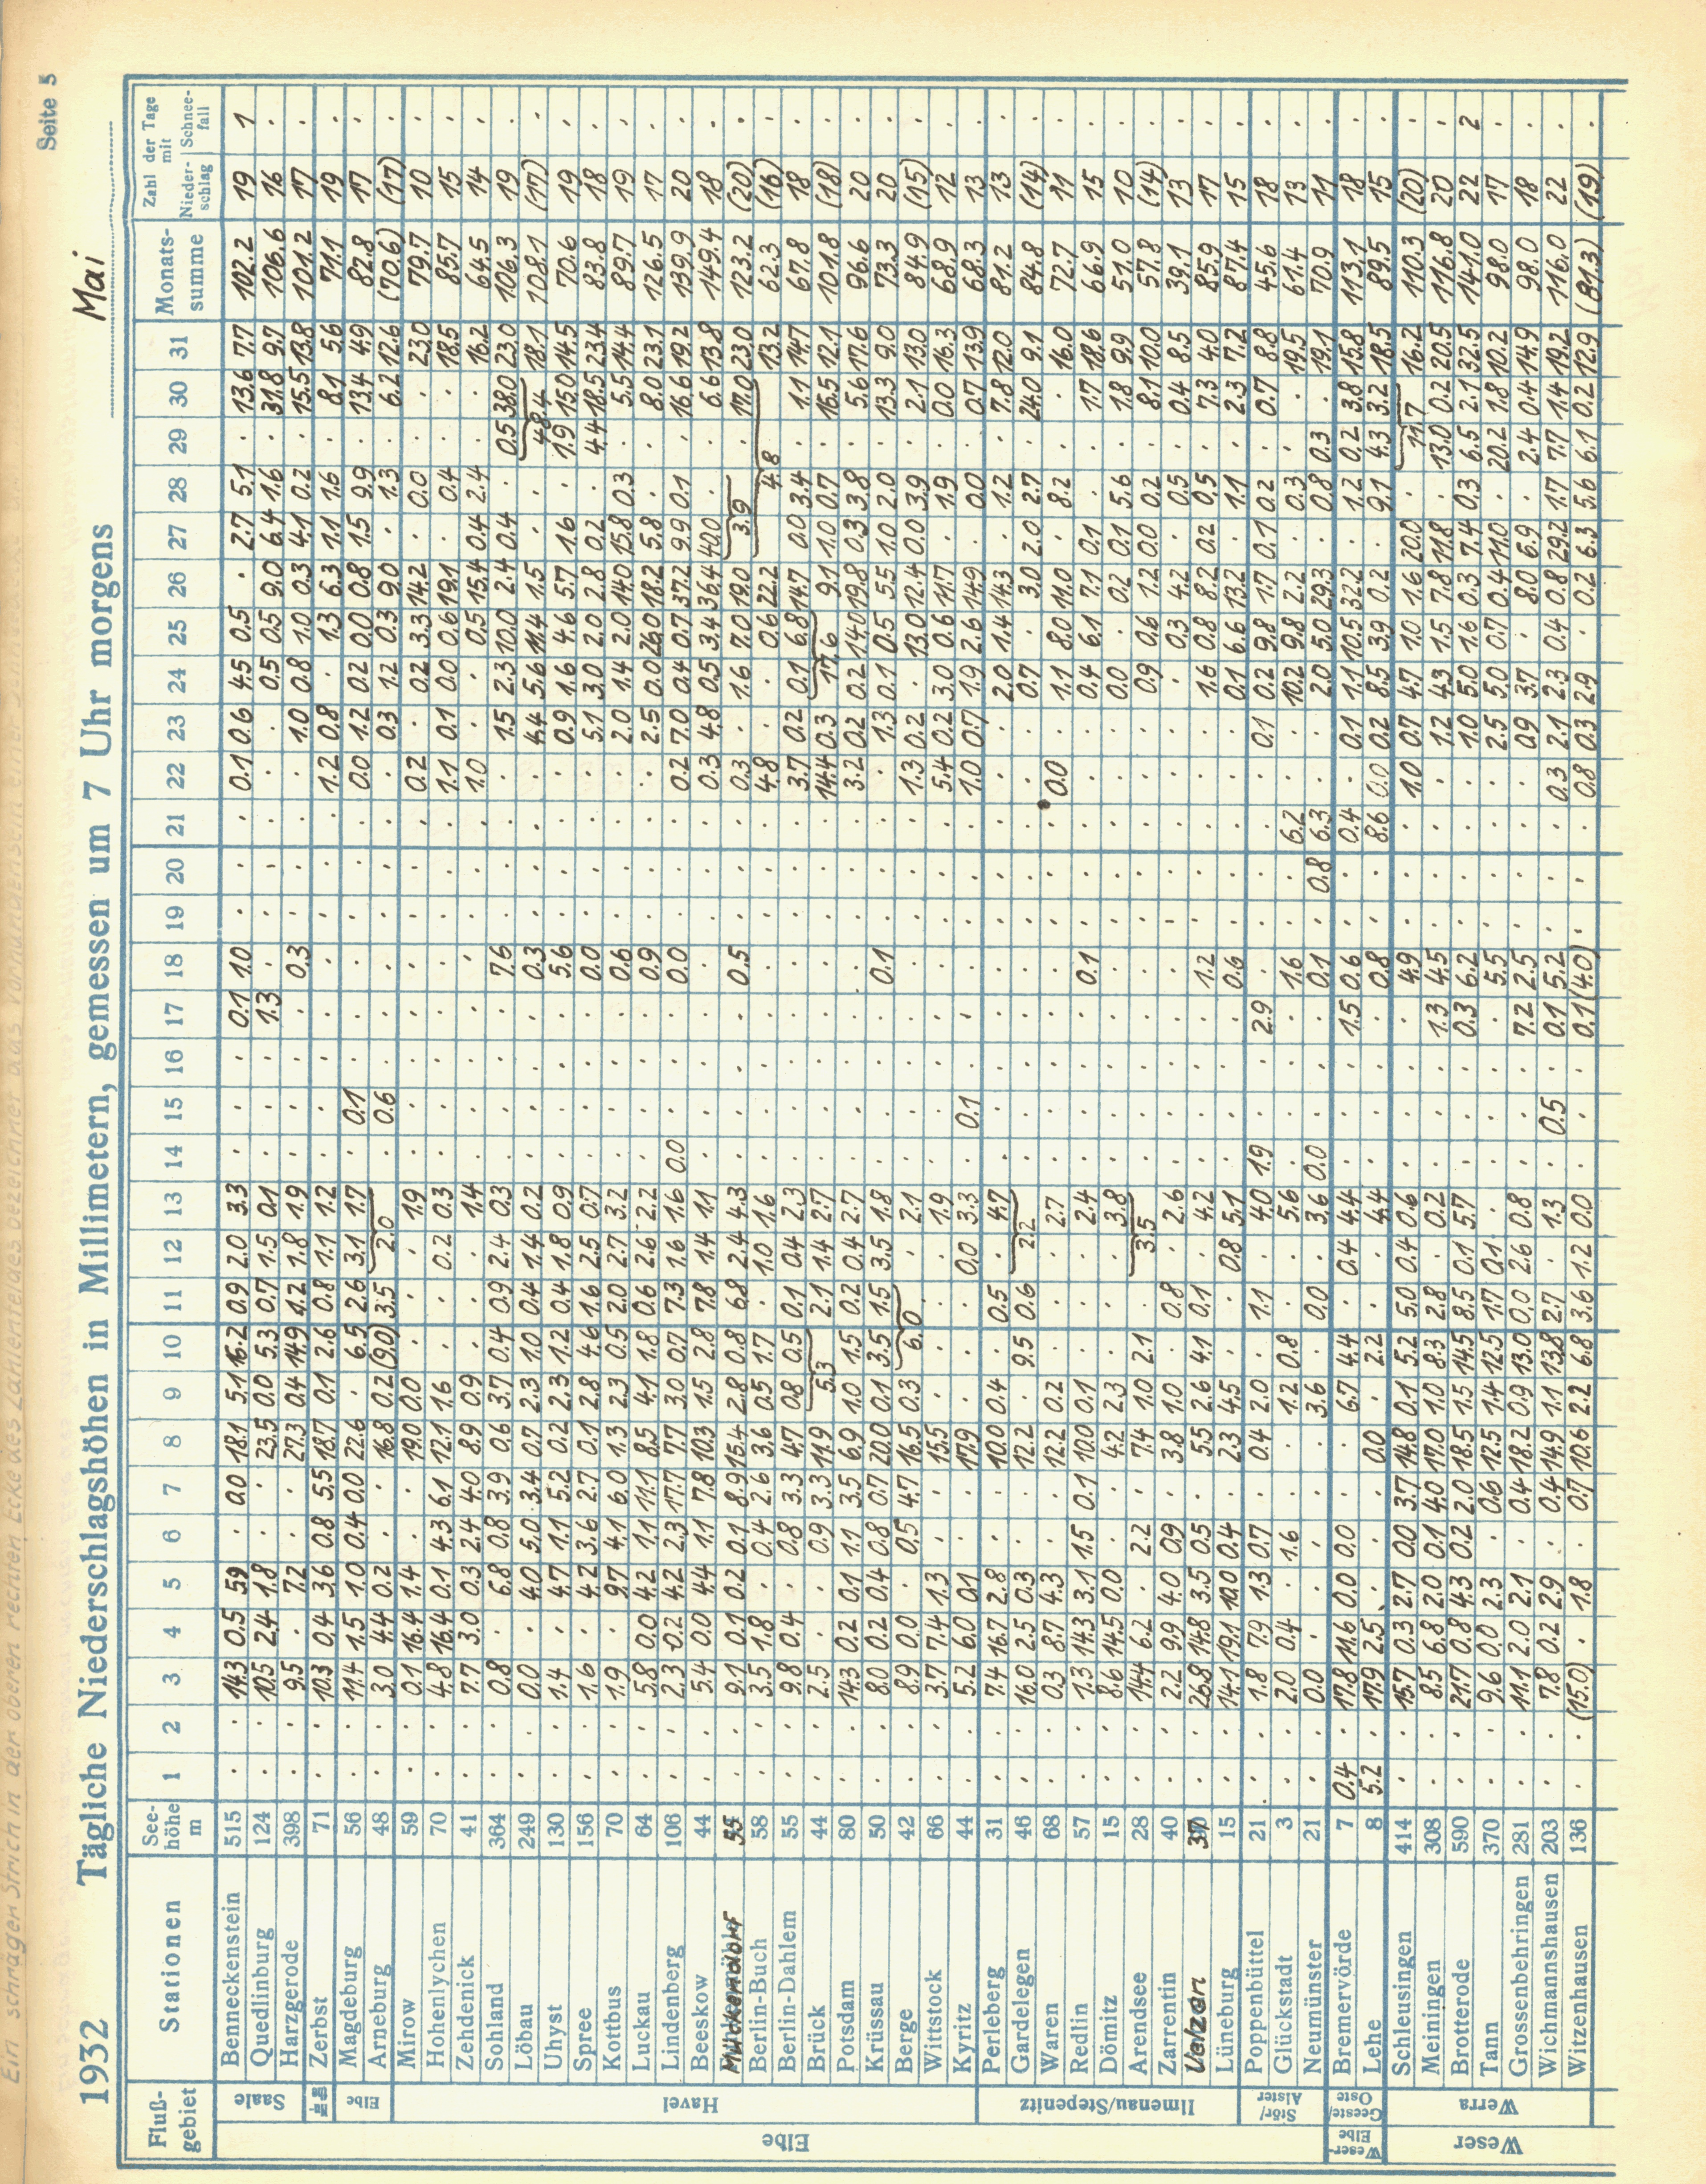 Seite 5
1932 Tägliche Niederschlagshöhen in Millimetern, gemessen um 7 Uhr morgens Mai
Fluß-gebiet Stationen See-höhe m 1 2 3 4 5 6 7 8 9 10 11 12 13 14 15 16 17 18 19 20 21 22 23 24 25 26 27 28 29 30 31 Monats-summe Zahl der Tage mit Nieder-schlag Schnee-fall
Elbe
Saale
Benneckenstein 515 14.3 0.5 5.9 0.0 18.1 5.1 16.2 0.9 2.0 3.3 0.1 1.0 0.1 0.6 4.5 0.5 2.7 5.1 13.6 7.7 102.2 19 1
Quedlinburg 124 10.5 2.4 1.8 23.5 0.0 5.3 0.7 1.5 0.1 1.3 0.5 0.5 9.0 6.4 1.6 31.8 9.7 106.6 16
Harzgerode 398 9.5 7.2 27.3 0.4 14.9 1.2 1.8 1.9 0.3 1.0 0.8 1.0 0.3 4.1 0.2 15.5 13.8 101.2 17
Zerbst 71 10.3 0.4 3.6 0.8 5.5 18.7 0.1 2.6 0.8 1.1 1.2 1.2 0.8 1.3 6.3 1.1 1.6 8.1 5.6 71.1 19
Elbe
Magdeburg 56 11.4 1.5 1.0 0.4 0.0 22.6 6.5 2.6 3.1 1.7 0.1 0.0 1.2 0.2 0.0 0.8 1.5 9.9 13.4 4.9 82.8 17
Arneburg 48 3.0 4.4 0.2 16.8 0.2 (9.0) 3.5 2.0 0.6 0.3 1.2 0.3 9.0 1.3 6.2 12.6 (70.6) (17)
Havel
Mirow 59 0.1 16.4 1.4 19.0 0.0 1.9 0.2 0.2 3.3 14.2 0.0 23.0 79.7 10
Hohenlychen 70 4.8 16.4 0.1 4.3 6.1 12.1 1.6 0.2 0.3 1.1 0.1 0.0 0.6 19.1 0.4 18.5 85.7 15
Zehdenick 41 7.7 3.0 0.3 2.4 4.0 8.9 0.9 1.4 1.0 0.5 15.4 0.4 2.4 16.2 64.5 14
Sohland 364 0.8 6.8 0.8 3.9 0.6 3.7 0.4 0.9 2.4 0.3 7.6 1.5 2.3 10.0 2.4 0.4 0.5 38.0 23.0 106.3 19
Löbau 249 0.0 4.0 5.0 3.4 0.7 2.3 1.0 0.4 1.4 0.2 0.3 4.4 5.6 11.4 1.5 48.4 18.1 108.1 (17)
Uhyst 130 1.4 4.7 1.1 5.2 0.2 2.3 1.2 0.4 1.8 0.9 5.6 0.9 1.6 4.6 5.7 1.6 1.9 15.0 14.5 70.6 19
Spree 156 1.6 4.2 3.6 2.7 0.1 2.8 4.6 1.6 2.5 0.7 0.0 5.1 3.0 2.0 2.8 0.2 4.4 18.5 23.4 83.8 18
Kottbus 70 1.9 9.7 4.1 6.0 1.3 2.3 0.5 2.0 2.7 3.2 0.6 2.0 1.4 2.0 14.0 15.8 0.3 5.5 14.4 89.7 19
Luckau 64 5.8 0.0 4.2 1.1 11.1 8.5 4.1 1.8 0.6 2.6 2.2 0.9 2.5 0.0 26.0 18.2 5.8 8.0 23.1 126.5 17
Lindenberg 106 2.3 0.2 4.2 2.3 17.7 7.7 3.0 0.7 7.3 1.6 1.6 0.0 0.0 0.2 7.0 0.4 0.7 37.2 9.9 0.1 16.6 19.2 139.9 20
Beeskow 44 5.4 0.0 4.4 1.1 7.8 10.3 1.5 2.8 7.8 1.4 1.1 0.3 4.8 0.5 3.4 36.4 40.0 6.6 13.8 149.4 18
Mückendorf 55 9.1 0.1 0.2 0.1 8.9 15.4 2.8 0.8 6.8 2.4 4.3 0.5 0.3 1.6 7.0 19.0 3.9 17.0 23.0 123.2 (20)
Berlin-Buch 58 3.5 1.8 0.4 2.6 3.6 0.5 1.7 1.0 1.6 4.8 0.6 22.2 4.8 13.2 62.3 (16)
Berlin-Dahlem 55 9.8 0.4 0.8 3.3 4.7 0.8 0.5 0.1 0.4 2.3 3.7 0.2 0.1 6.8 14.7 0.0 3.4 1.1 14.7 67.8 18
Brück 44 2.5 0.9 3.3 11.9 5.3 2.1 1.4 2.7 14.4 0.3 17.6 9.1 1.0 0.7 16.5 12.1 101.8 (18)
Potsdam 80 14.3 0.2 0.1 1.1 3.5 6.9 1.0 1.5 0.2 0.4 2.7 3.2 0.2 0.2 14.0 19.8 0.3 3.8 5.6 17.6 96.6 20
Krüssau 50 8.0 0.2 0.4 0.8 0.7 20.0 0.1 3.5 1.5 3.5 1.8 0.1 1.3 0.1 0.5 5.5 1.0 2.0 13.3 9.0 73.3 20
Berge 42 8.9 0.0 0.5 4.7 16.5 0.3 6.0 2.1 1.3 0.2 13.0 12.4 0.0 3.9 2.1 13.0 84.9 (15)
Wittstock 66 3.7 7.4 1.3 15.5 1.9 5.4 0.2 3.0 0.6 11.7 1.9 0.0 16.3 68.9 12
Kyritz 44 5.2 6.0 0.1 17.9 0.0 3.3 0.1 1.0 0.7 1.9 2.6 14.9 0.0 0.7 13.9 68.3 13
Ilmenau/Stepenitz
Perleberg 31 7.4 16.7 2.8 10.0 0.4 0.5 4.7 2.0 1.4 14.3 1.2 7.8 12.0 81.2 13
Gardelegen 46 16.0 2.5 0.3 12.2 9.5 0.6 2.2 0.7 3.0 2.0 2.7 24.0 9.1 84.8 (14)
Waren 68 0.3 8.7 4.3 12.2 0.2 2.7 0.0 1.1 8.0 11.0 8.2 16.0 72.7 11
Redlin 57 1.3 14.3 3.1 1.5 0.1 10.0 0.1 2.4 0.1 0.4 6.1 7.1 0.1 1.7 18.6 66.9 15
Dömitz 15 8.6 14.5 0.0 4.2 2.3 3.8 0.0 0.2 0.1 5.6 1.8 9.9 51.0 10
Arendsee 28 14.4 6.2 2.2 7.4 1.0 2.1 3.5 0.9 0.6 1.2 0.0 0.2 8.1 10.0 57.8 (14)
Zarrentin 40 2.2 9.9 4.0 0.9 3.8 1.0 0.8 2.6 0.3 4.2 0.5 0.4 8.5 39.1 13
Uelzen 37 26.8 14.8 3.5 0.5 5.5 2.6 4.1 0.1 4.2 1.2 1.6 0.8 8.2 0.2 0.5 7.3 4.0 85.9 17
Lüneburg 15 14.1 19.1 10.0 0.4 2.3 4.5 0.8 5.1 0.6 0.1 6.6 13.2 1.1 2.3 7.2 87.4 15
Stör/Alster
Poppenbüttel 21 1.8 7.9 1.3 0.7 0.4 2.0 1.1 4.0 1.9 2.9 0.1 0.2 9.8 1.7 0.1 0.2 0.7 8.8 45.6 18
Glückstadt 3 2.0 0.4 1.6 1.2 0.8 5.6 1.6 6.2 10.2 9.8 2.2 0.3 19.5 61.4 13
Neumünster 21 0.0 3.6 0.0 3.6 0.0 0.1 0.8 6.3 2.0 5.0 29.3 0.8 0.3 19.1 70.9 11
Weser-Elbe
Geeste/Oste
Bremervörde 7 0.4 17.8 11.6 0.0 0.0 6.7 4.4 0.4 4.4 1.5 0.6 0.4 0.1 1.1 10.5 32.2 1.2 0.2 3.8 15.8 113.1 18
Lehe 8 5.2 17.9 2.5 0.0 2.2 4.4 0.8 8.6 0.0 0.2 8.5 3.9 0.2 9.1 4.3 3.2 18.5 89.5 15
Weser
Werra
Schleusingen 414 15.7 0.3 2.7 0.0 3.7 14.8 0.1 5.2 5.0 0.4 0.6 4.9 1.0 0.7 4.7 1.0 1.6 20.0 11.7 16.2 110.3 (20)
Meiningen 308 8.5 6.8 2.0 0.1 4.0 17.0 1.0 8.3 2.8 0.2 1.3 4.5 1.2 4.3 1.5 7.8 11.8 13.0 0.2 20.5 116.8 20
Brotterode 590 21.7 0.8 4.3 0.2 2.0 18.5 1.5 14.5 8.5 0.1 5.7 0.3 6.2 1.0 5.0 1.6 0.3 7.4 0.3 6.5 2.1 32.5 141.0 22 2
Tann 370 9.6 0.0 2.3 0.6 12.5 1.4 12.5 1.7 0.1 5.5 2.5 5.0 0.7 0.4 11.0 20.2 1.8 10.2 98.0 17
Grossenbehringen 281 11.1 2.0 2.1 0.4 18.2 0.9 13.0 0.0 2.6 0.8 7.2 2.5 0.9 3.7 8.0 6.9 2.4 0.4 14.9 98.0 18
Wichmannshausen 203 7.8 0.2 2.9 0.4 14.9 1.1 13.8 2.7 1.3 0.5 0.1 5.2 0.3 2.1 2.3 0.4 0.8 29.2 1.7 7.7 1.4 19.2 116.0 22
Witzenhausen 136 (15.0) 1.8 0.7 10.6 2.2 6.8 3.6 1.2 0.0 0.1 (4.0) 0.8 0.3 2.9 0.2 6.3 5.6 6.1 0.2 12.9 (81.3) (19)